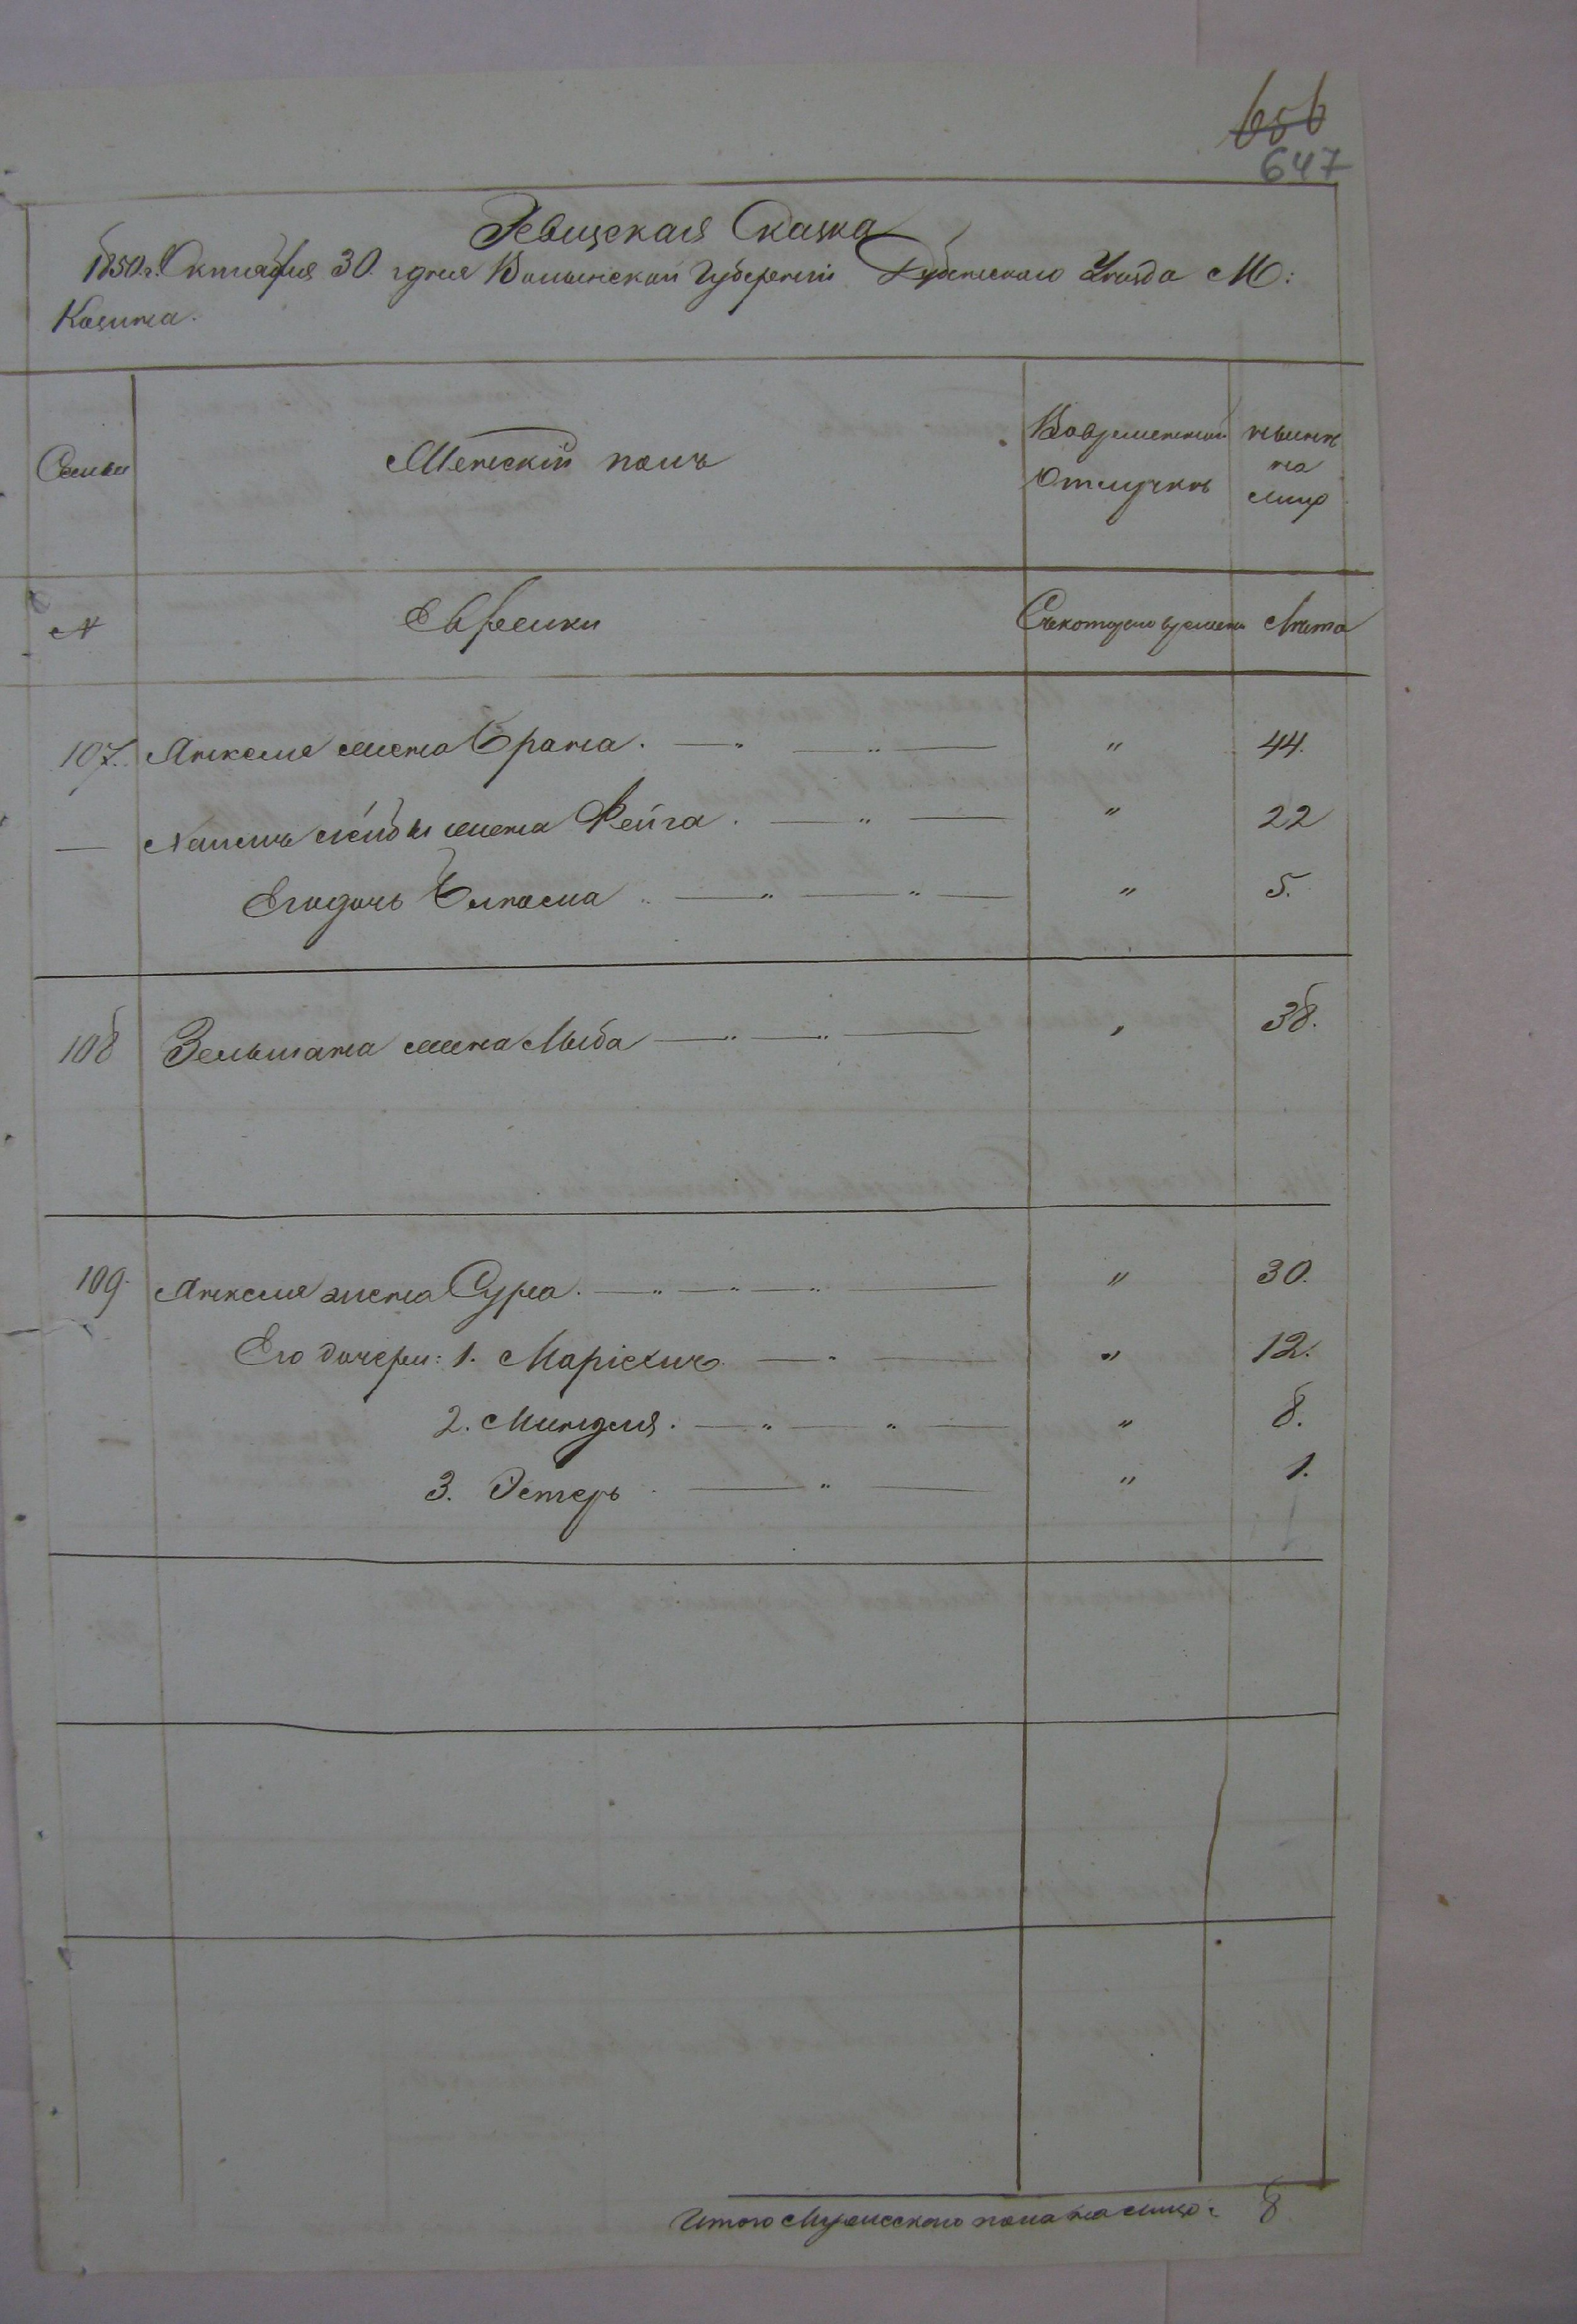 656
647
Ревизская Сказка
1850 г. Октября 30 дня Волынской Губернiи Дубенского Уѣзда М:
Козина.
Семьи
Женскiй полъ
Во временной отлучкѣ
нынѣ на лицо
N
Еврейки
Съ которого времени
Лѣта
107. Янкеля жена Брана. " 44.
— лейбы жена Фейга. " 22
Его дочь " 5.
108 Зельмана жена Либа " 38.
109. Янкеля жена Сура. " 30.
Его дочери: 1. Марiехич " 12.
2. Миндля. " 8.
3. Эстеръ " 1.
Итого Женского пола на лицо: 8